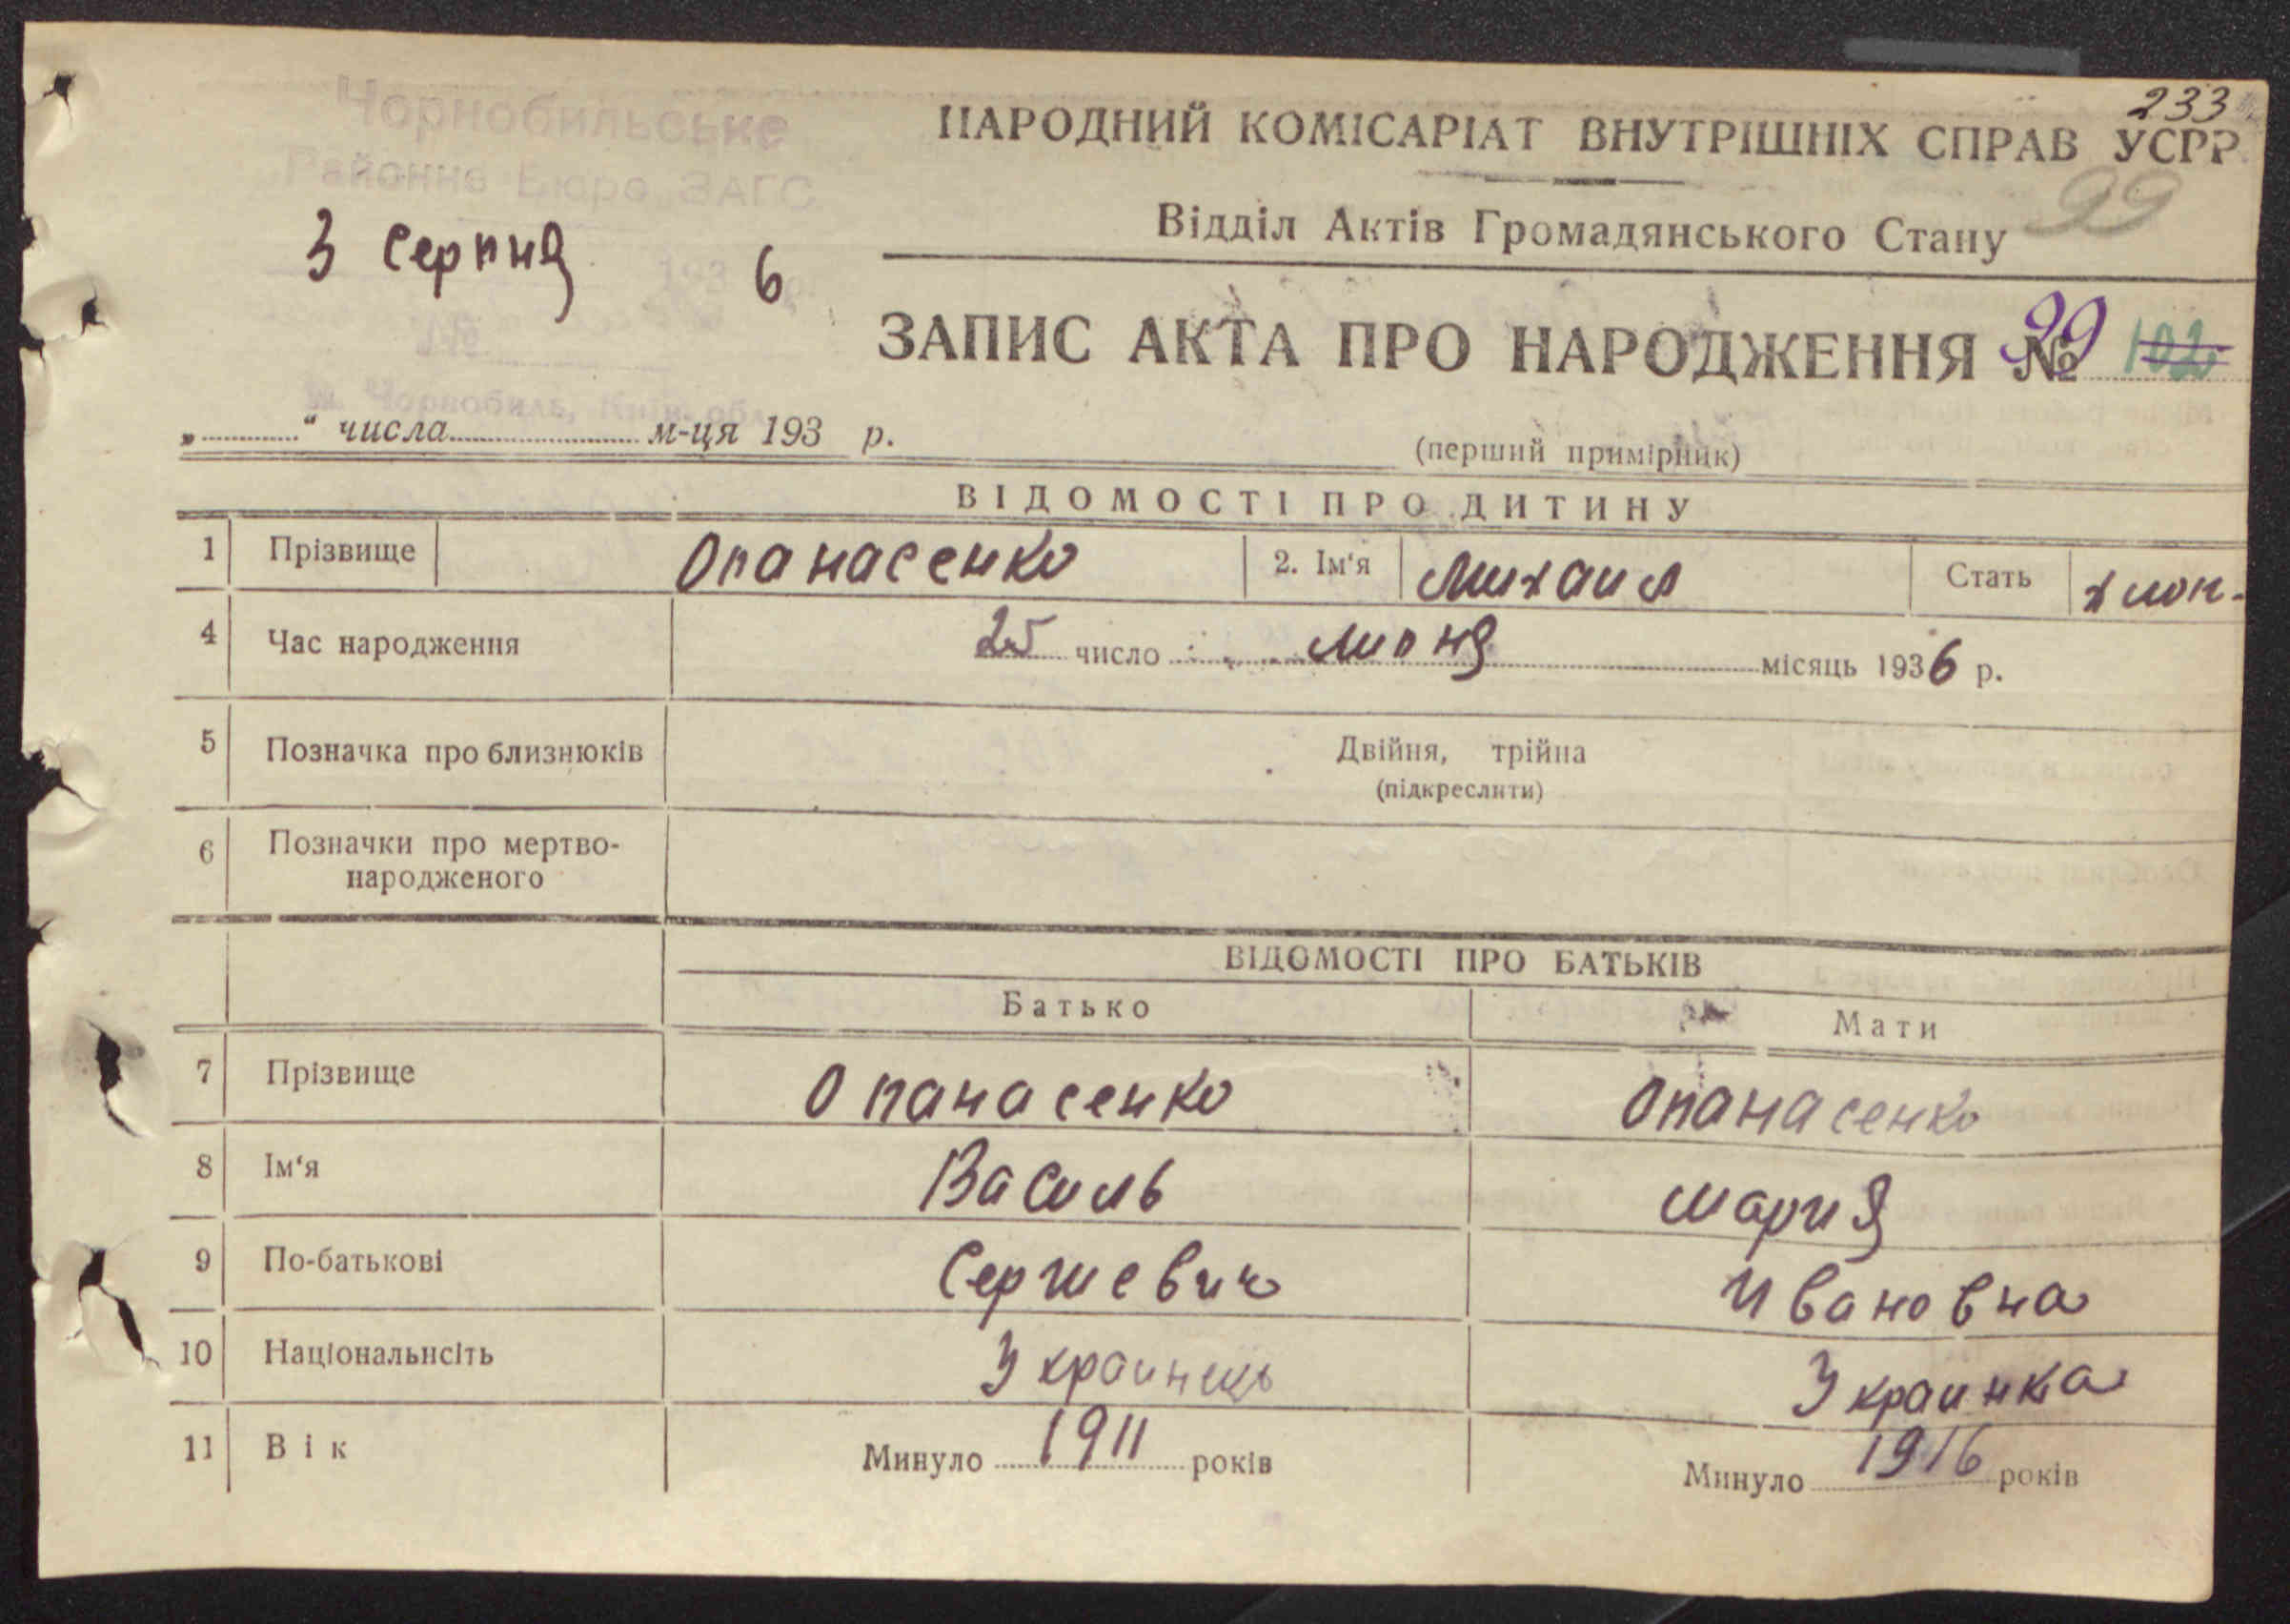 233
Чорнобильське
НАРОДНИЙ КОМІСАРІАТ ВНУТРІШНІХ СПРАВ УСРР
Районне Бюро ЗАГС
99
Відділ Актів Громадянського Стану
3 Серпня 193 6 р.
№
ЗАПИС АКТА ПРО НАРОДЖЕННЯ № 99 102
м. Чорнобиль, Київ. обл.
„ “ числа м-ця 193 р.
(перший примірник)
ВІДОМОСТІ ПРО ДИТИНУ
1 Прізвище Опанасенко 2. Ім‘я Михаил Стать хлоп.
4 Час народження 25 число июня місяць 1936 р.
5 Позначка про близнюків Двійня, трійна
(підкреслити)
6 Позначки про мертво-
народженого
ВІДОМОСТІ ПРО БАТЬКІВ
Батько Мати
7 Прізвище Опанасенко Опанасенко
8 Ім‘я Василь Мария
9 По-батькові Сергиевич Ивановна
10 Національнсіть Украинець Украинка
11 Вік Минуло 1911 років Минуло 1916 років